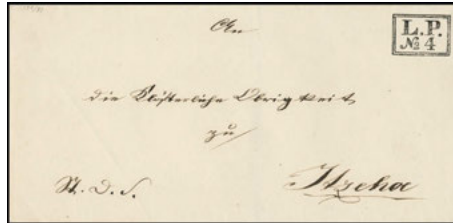 An
L.P.
№ 4
die Klösterliche Obrigkeit
zu
St. D. S.
Itzehoe